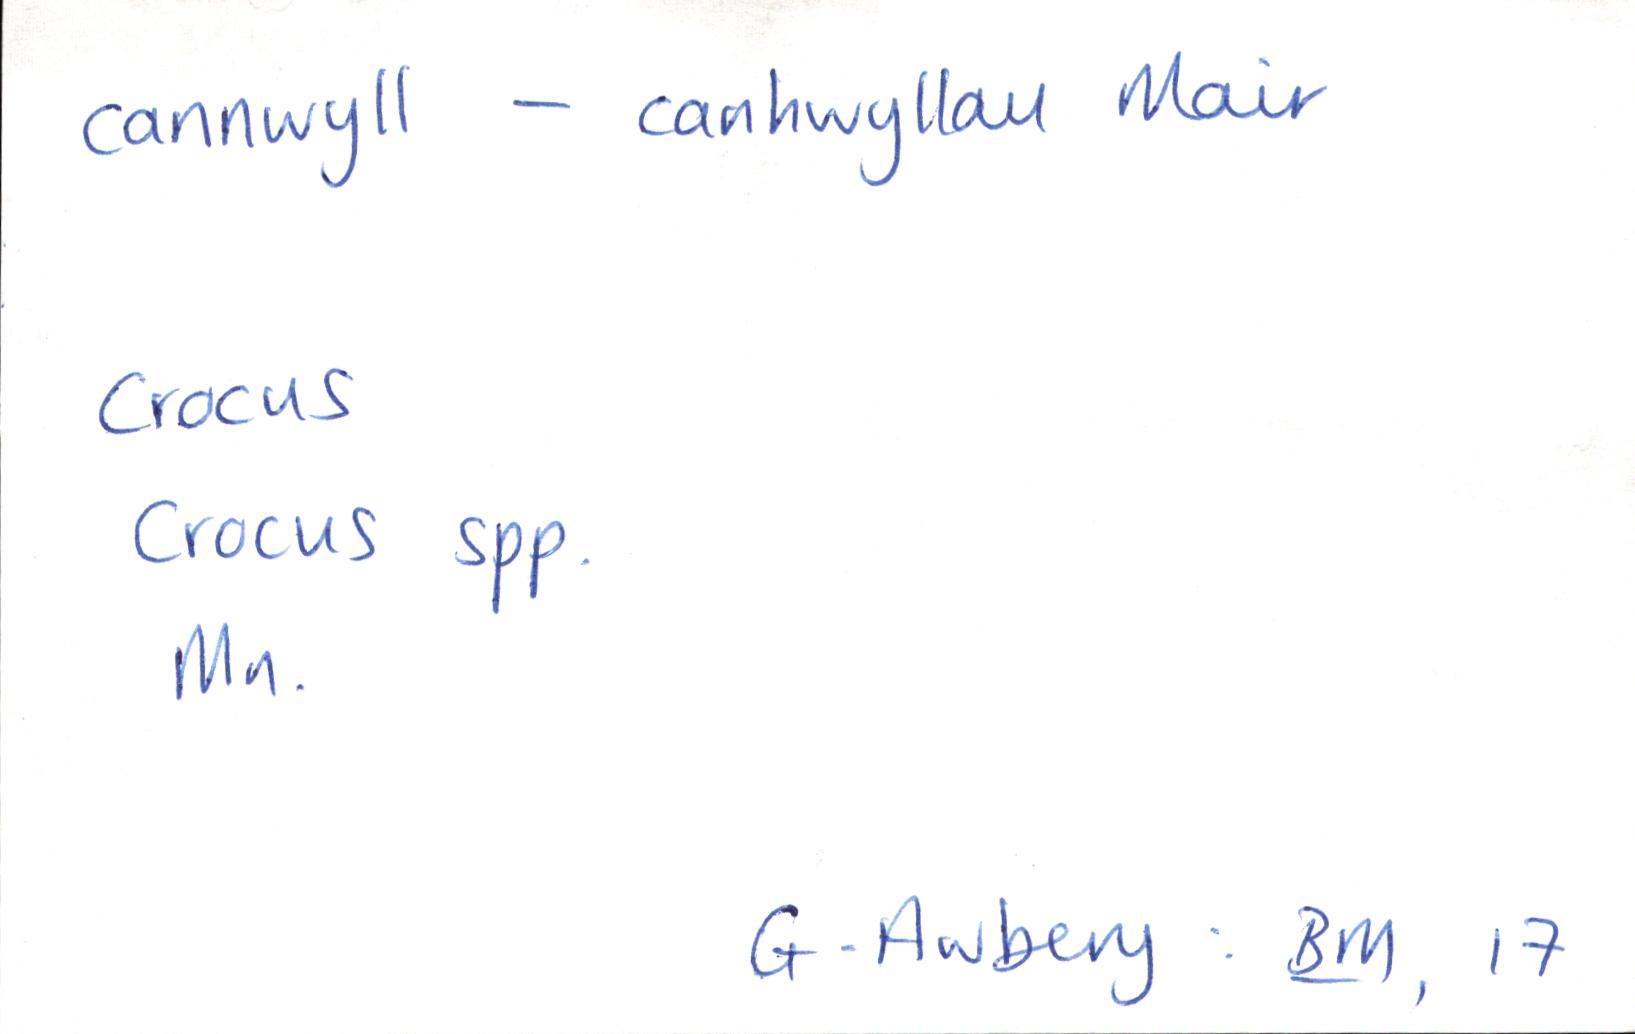 cannwyll - canhwyllau Mair
Crocus
Crocus spp.
Mn.
G. Awbery : BM, 17